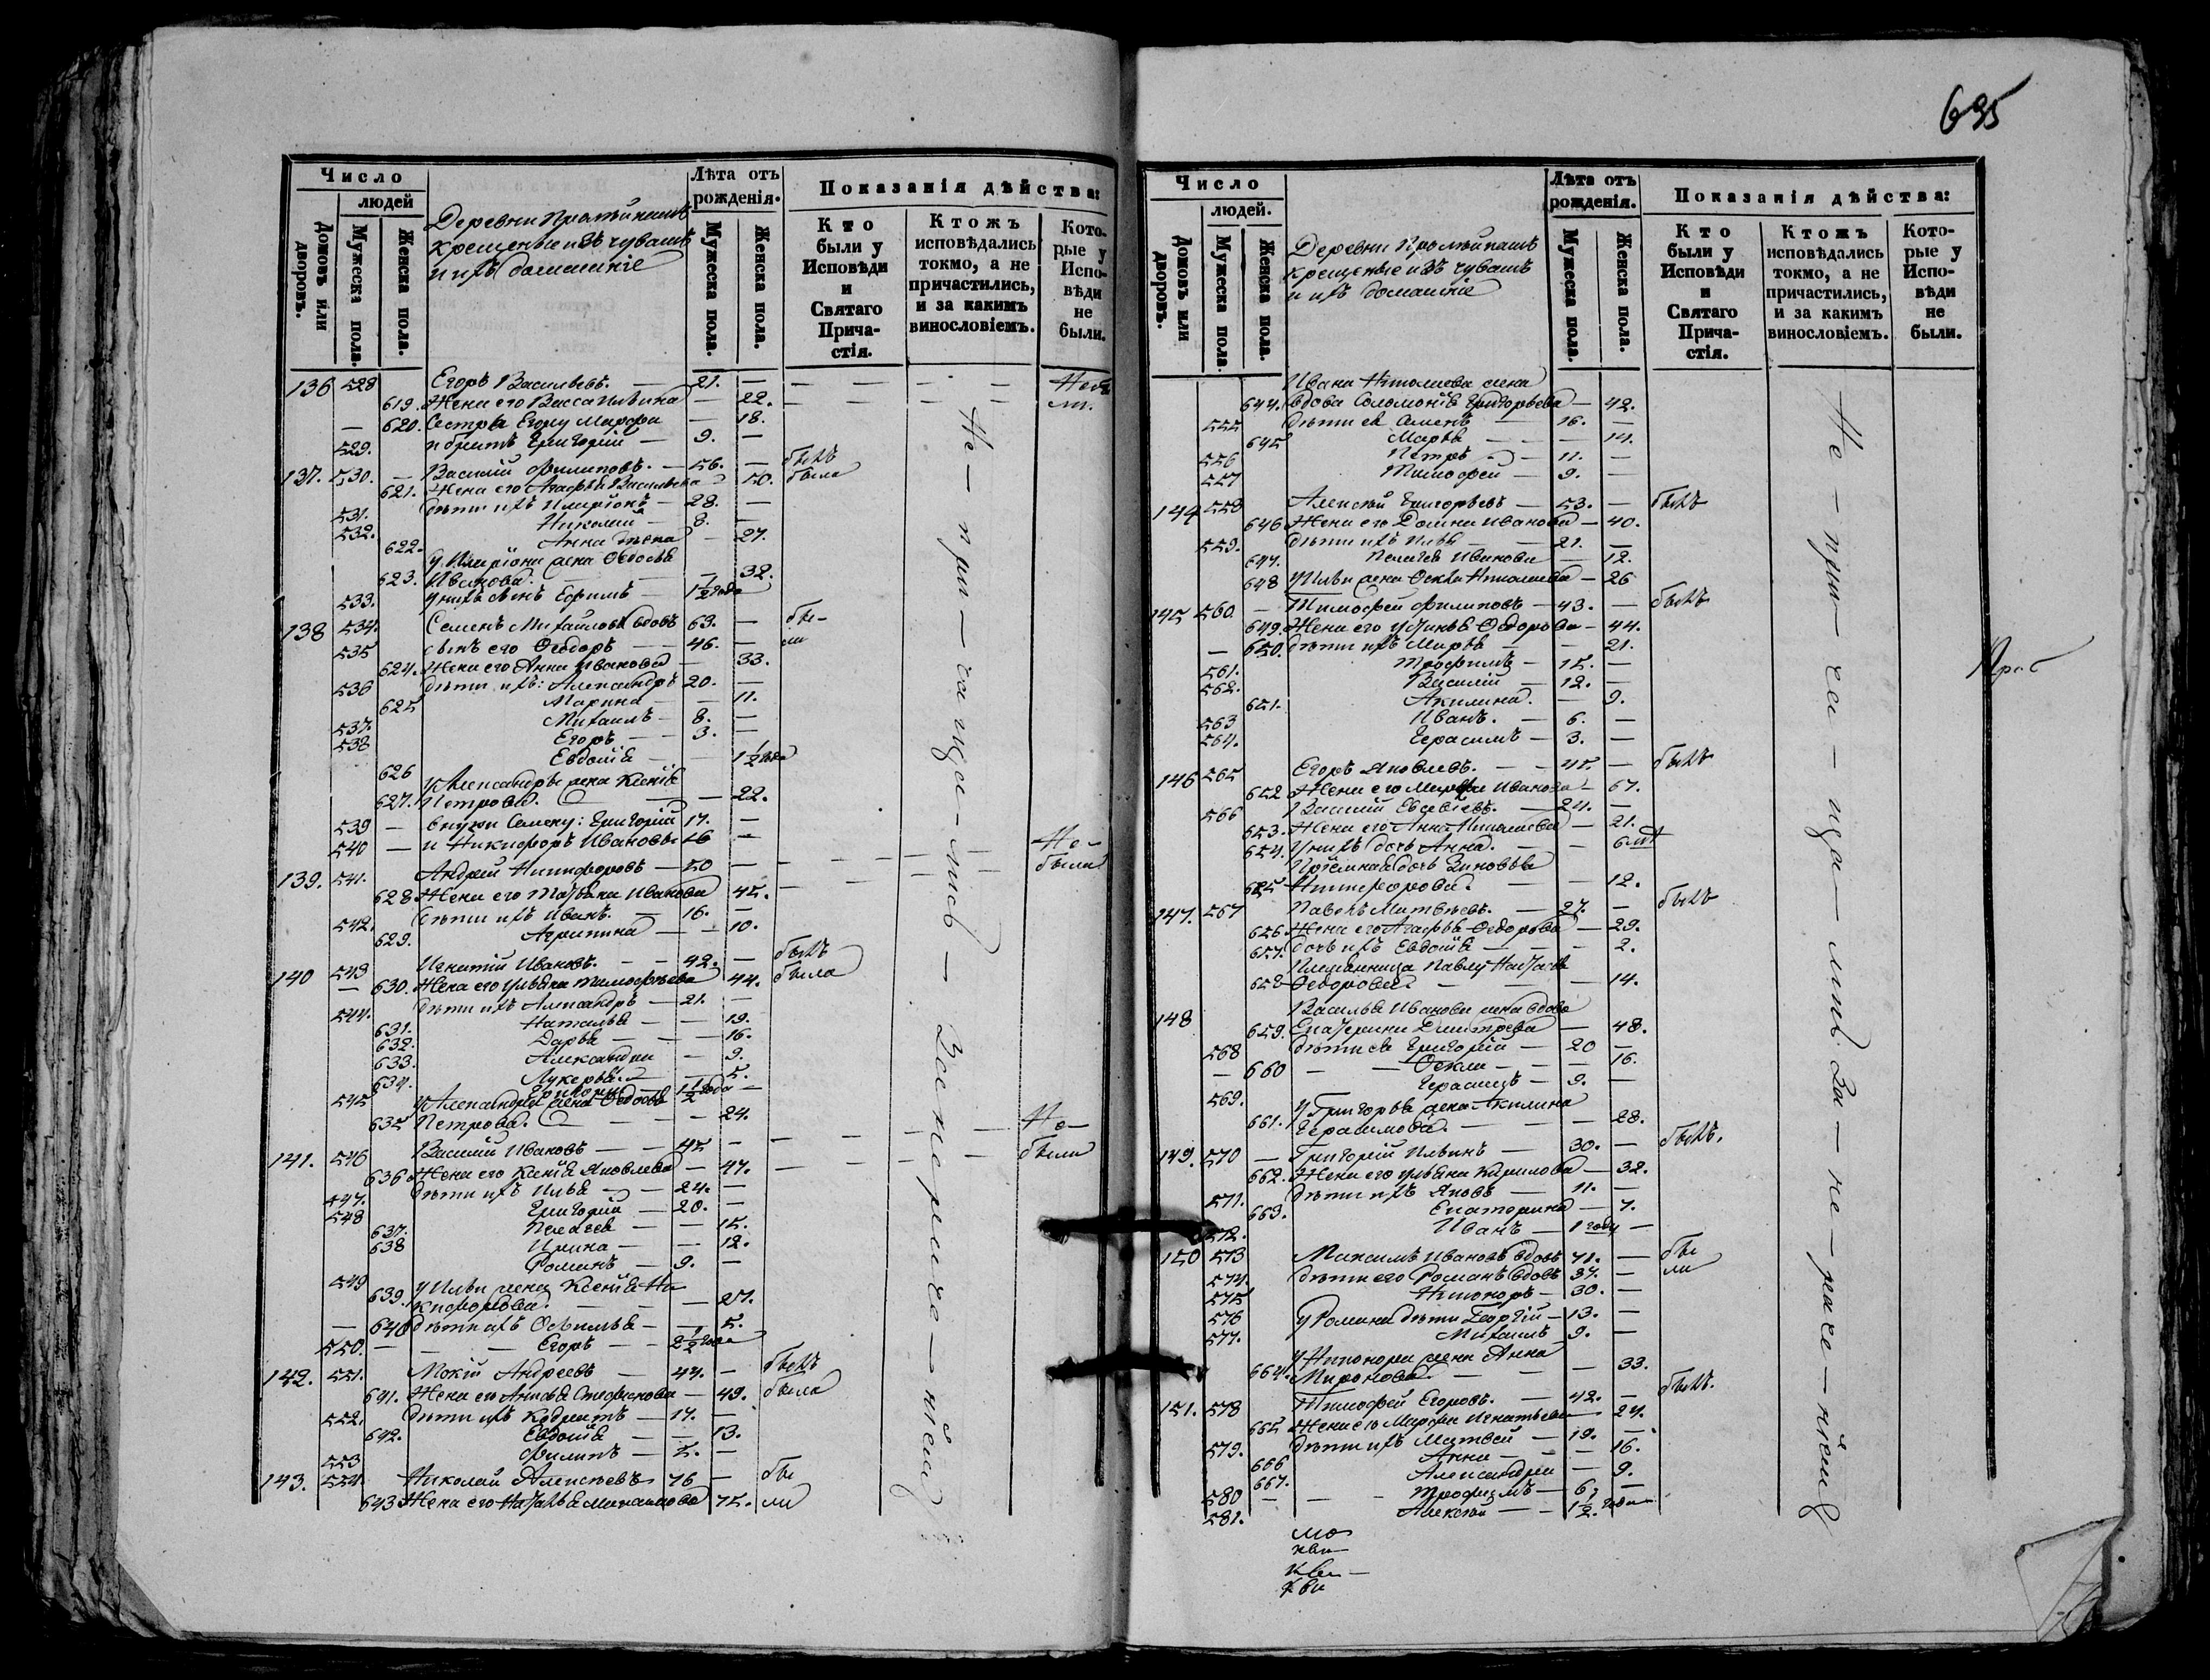 695
Число
людей
Домовъ или дворовъ.
Мужеска пола.
Женска пола.
Деревни
крещеные изъ чувашъ
и ихъ домашніе
Лѣта отъ рожденія.
Мужеска пола.
Женска пола.
Показанія дѣйства:
Кто были у Исповѣди и Святаго Прича-стія.
Ктожъ исповѣдались токмо, а не причастились, и за какимъ винословіемъ.
Кото-рые у Испо-вѣди не были.
136 528 Егоръ Васильевъ. — 21. —
619. Жена его Васса Ильина — 22.
620. Сестра Егору Марфа — 18.
529. и братъ Григорій — 9. —
137. 530. Василій Филиповъ. — 56. — былъ
621. Жена его Агафья Васильева — 50. была
531. дѣти ихъ Иларіонъ — 28. —
532. Николай — 8. —
622. Анна — 27.
у Иларіона жена Федосья
623. Иванова. — 32.
533. у нихъ сынъ Ефимъ — 1½ года
138 534. Семенъ Михайловъ вдовъ 63. — бы-
535 сынъ его Феодоръ — 46. — ли
624. Жена его Анна Иванова — 33.
536 дѣти ихъ: Александръ 20. —
625 Марина — 11.
537. Михаилъ — 8. —
538 Егоръ — 3. —
626 Евдокія — 1½ года
у Александра жена Ксенія
627. Петрова. — 22.
539 — внуки Семену: Григорій 17. —
540 — и Никифоръ Ивановы 16 —
Не-
139. 541. Андрей Никифоровъ — 50 — были
628 Жена его Татьяна Иванова 45.
542. дѣти ихъ Иванъ. — 16. —
629. Агрипина — 10.
140 543 Игнатій Ивановъ. — 42. — былъ
630. Жена его Ульяна Тимофѣева 44. была
544. дѣти ихъ Александръ — 21. —
631. Наталья — 19.
632. Дарья — 16.
633. Александра — 9.
634. Лукерья. — 5.
545 1½ года —
у Александра жена Федосья
635 Петрова. — 24.
Не-
141. 546 Василій Ивановъ — 45 — были
636 Жена его Ксенія Яковлева — 47.
547. дѣти ихъ Илья — 24. —
548 Григорій — 20. —
637. Пелагея — 15.
638 Ирина — 12.
549 Романъ — 9. —
639. у Ильи жена Ксенія Ни-
кифорова. — 27.
640 дѣти ихъ — 5.
550. Егоръ — 2½ года
142. 551. Мокій Андреевъ — 44. — былъ
641. Жена его Анисья Стефанова — 49. была
552. дѣти ихъ Кодратъ — 17. —
642. Евдокія — 13.
553 Филипъ — 5. —
143. 554 Николай Алексѣевъ 76 — бы
643 Жена его Наталья 75. ли
Не — при — ча — ща — лись — За — не — раче — ніемъ
Число
людей.
Домовъ или дворовъ.
Мужеска пола.
Женска пола.
Деревни
крещеные изъ чувашъ
и ихъ домашніе
Лѣта отъ рожденія.
Мужеска пола.
Женска пола.
Показанія дѣйства:
Кто были у Исповѣди и Святаго Прича-стія.
Ктожъ исповѣдались токмо, а не причастились, и за какимъ винословіемъ.
Кото-рые у Испо-вѣди не были.
Ивана Николаева жена
644. вдова Соломонія Григорьева — 42.
555 дѣти ея Семенъ — 16. —
645 Марья — 14.
556 Петръ — 11. —
557 Тимофей — 9. —
144 558 Алексѣй Григорьевъ — 53. — былъ
646 Жена его Домна Иванова — 40.
559. дѣти ихъ Илья — 21. —
647. Пелагея Иванова — 12.
648 у Ильи жена Фекла Николаева — 26
145 560. — Тимофей Филиповъ — 43. — былъ
649. Жена его Устинья Федорова — 44.
650. дѣти ихъ Марья — 21.
561. Трофимъ — 15. —
562. Василій — 12. —
651. Акилина. — 9.
563 Иванъ. — 6. —
564. Герасимъ — 3. —
146 565 Егоръ Яковлевъ. — 45. — былъ
652 Жена его Марфа Иванова — 67.
566 Василій Евсевіевъ. — 24. —
653. Жена его Анна Николаева — 21.
654. У нихъ дочь Анна. —
Пріемная дочь Зиновья
655 Никифорова. — 12.
147. 567 Павелъ Матвѣевъ. — 27. — былъ
656. Жена его Агафья Федорова — 29.
657. дочь ихъ Евдокія — 2.
Племянница Павлу Наталья
658 Федорова. — 14.
148 Василья Иванова жена вдова
659. Екатерина Дмитрева — 48.
568 дѣти ея Григорій — 20 —
660 Фекла — 16.
569. Герасимъ — 9. —
у Григорья жена Акилина
661. Герасимова. — 28.
149. 570 — Григорій Ильинъ — 30. — былъ.
662. Жена его Ульяна Кирилова — 32.
571. дѣти ихъ Яковъ — 11. —
663. Екатерина — 7.
572. Иванъ — 1 году —
150 573 Максимъ Ивановъ вдовъ 71. — бы
574. дѣти его Романъ вдовъ 37. — ли
575 Никоноръ — 30. —
576 у Романа дѣти Георгій — 13. —
577. Михаилъ 9. —
у Никонора жена Анна
664. Миронова. — 33.
151. 578 Тимофей Егоровъ. — 42. — былъ.
665 Жена его Марфа Игнатьева — 24.
579. дѣти ихъ Матвей — 19. —
666 Анна — 16.
667. Александра — 9.
580 Трофимъ — 6. —
581. Алексѣй — 1½ года
Не — при — ча — ща — лись За — не — раче — ніемъ